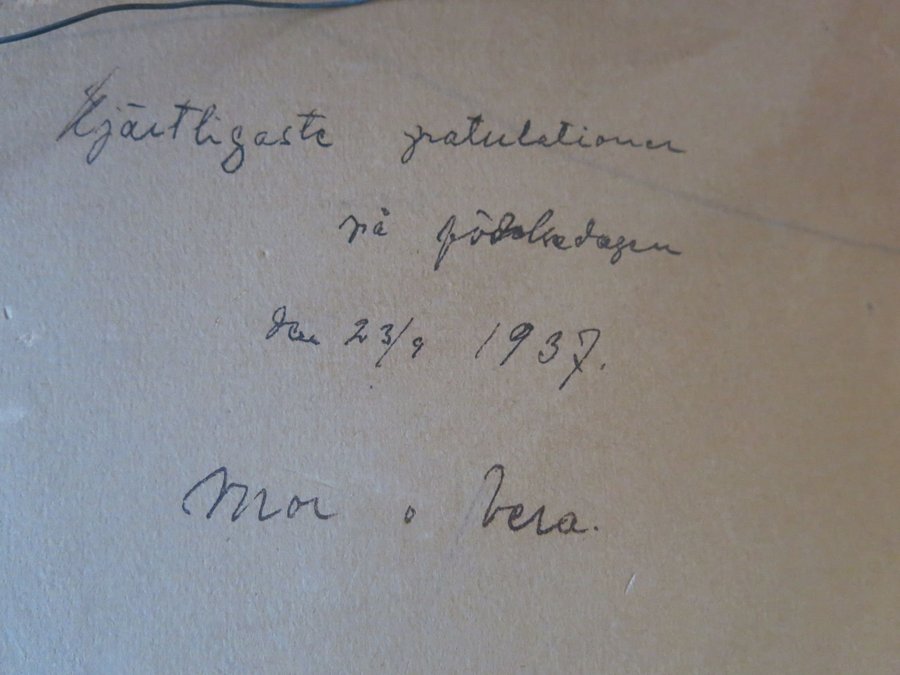 Hjärtligaste gratulationer
på födelsedagen
den 23/9 1937.
Mor o Vera.